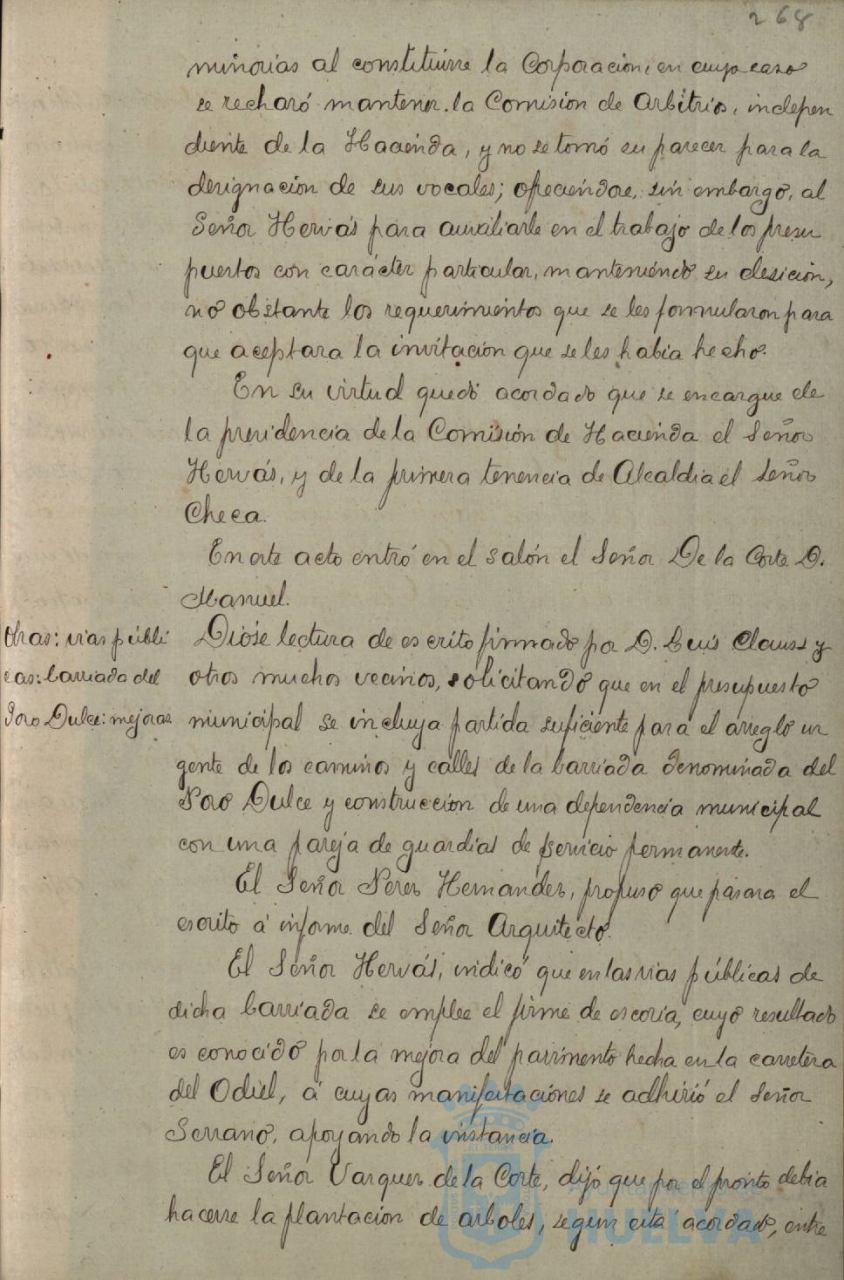 268
minorias al constituirse la Corporación, en cuyo caso
se rechazó mantener la Comisión de Arbitrios, indepen
diente de la Hacienda, y no se tomó su parecer para la
designación de sus vocales; ofreciéndose, sin embargo, al
Señor Hervás para auxiliarle en el trabajo de los presu
puestos con carácter particular, manteniendo su desición,
no obstante los requerimientos que se les formularon para
que aceptara la invitación que se les habia hecho.
En su virtud quedó acordado que se encargue de
la presidencia de la Comisión de Hacienda el Señor
Hervás, y de la primera tenencia de Alcaldia el Señor
Checa.
En este acto entró en el salón el Señor De la Corte D.
Manuel.
Obras: vias públi
cas: barriada del
Pozo Dulce: mejoras
Dióse lectura de escrito firmado por D. Luis Clauss y
otros muchos vecinos, solicitando que en el presupuesto
municipal se incluya partida suficiente para el arreglo ur
gente de los caminos y calles de la barriada denominada del
Pozo Dulce y construcción de una dependencia municipal
con una pareja de guardias de servicio permanente.
El Señor Perez Hernandez, propuso que pasara el
escrito á informe del Señor Arquitecto.
El Señor Hervás, indicó que en las vias públicas de
dicha barriada se emplee el firme de escoria, cuyo resultado
es conocido por la mejora del pavimento hecha en la carretera
del Odiel, á cuyas manifestaciones se adhirió el Señor
Serrano, apoyando la instancia.
El Señor Vazquez de la Corte, dijó que por el pronto debia
hacerse la plantación de arboles, segun está acordado, entre
HUELVA